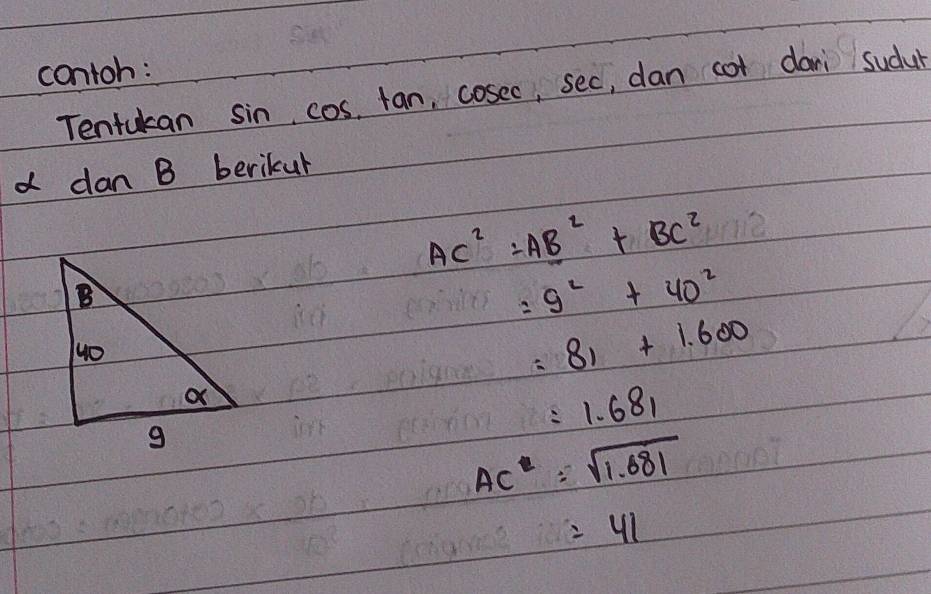 contoh:
Tentukan sin, cos, tan, cosec, sec, dan cot dari sudut
α dan B berikut
B
40
α
9
AC² = AB² + BC²
= 9² + 40²
= 81 + 1.600
= 1.681
AC = √1.681
= 41